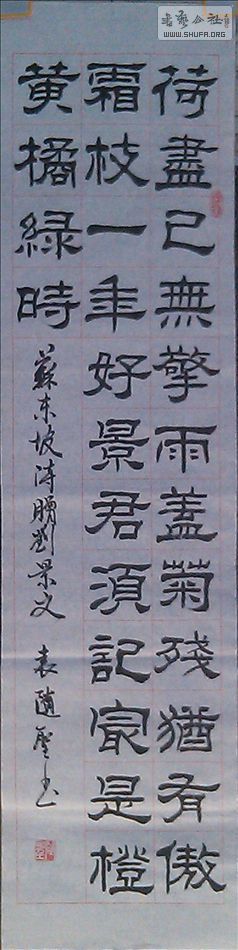 荷盡已無擎雨蓋菊殘猶有傲
霜枝一年好景君須記最是橙
黄橘緑時
蘇東坡詩贈劉景文 袁隨雲书
书艺公社
WWW.SHUFA.ORG